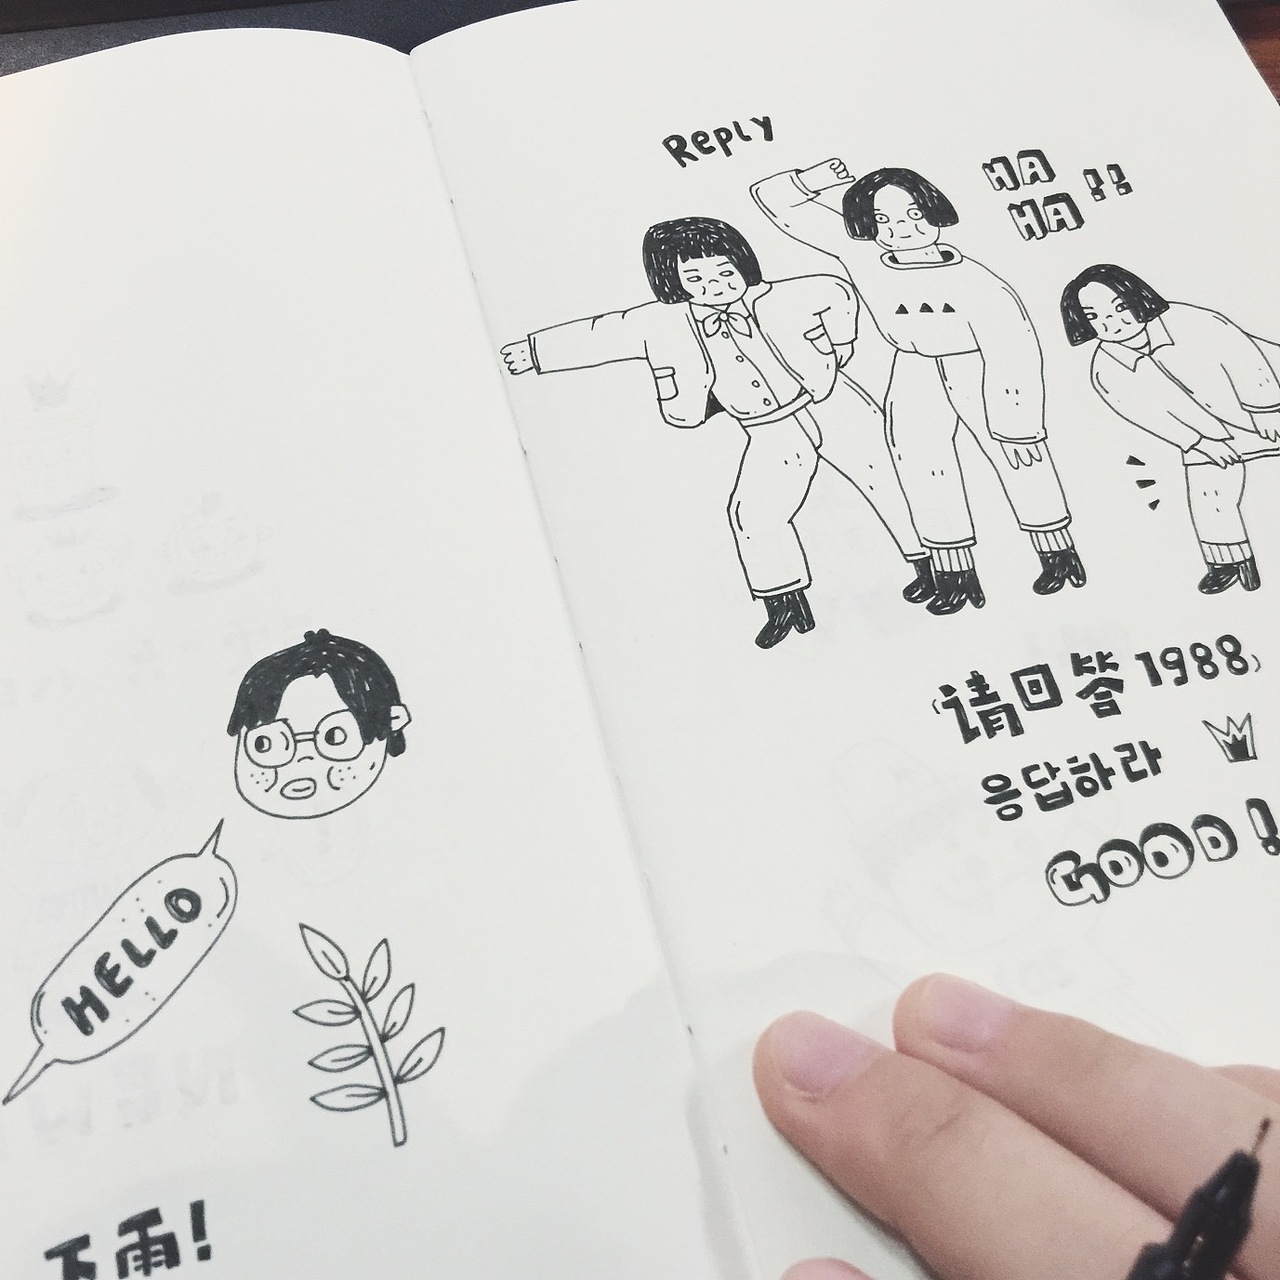 HELLO
下雨!
Reply
HA
HA!!
(请回答1988)
응답하라
GOOD!